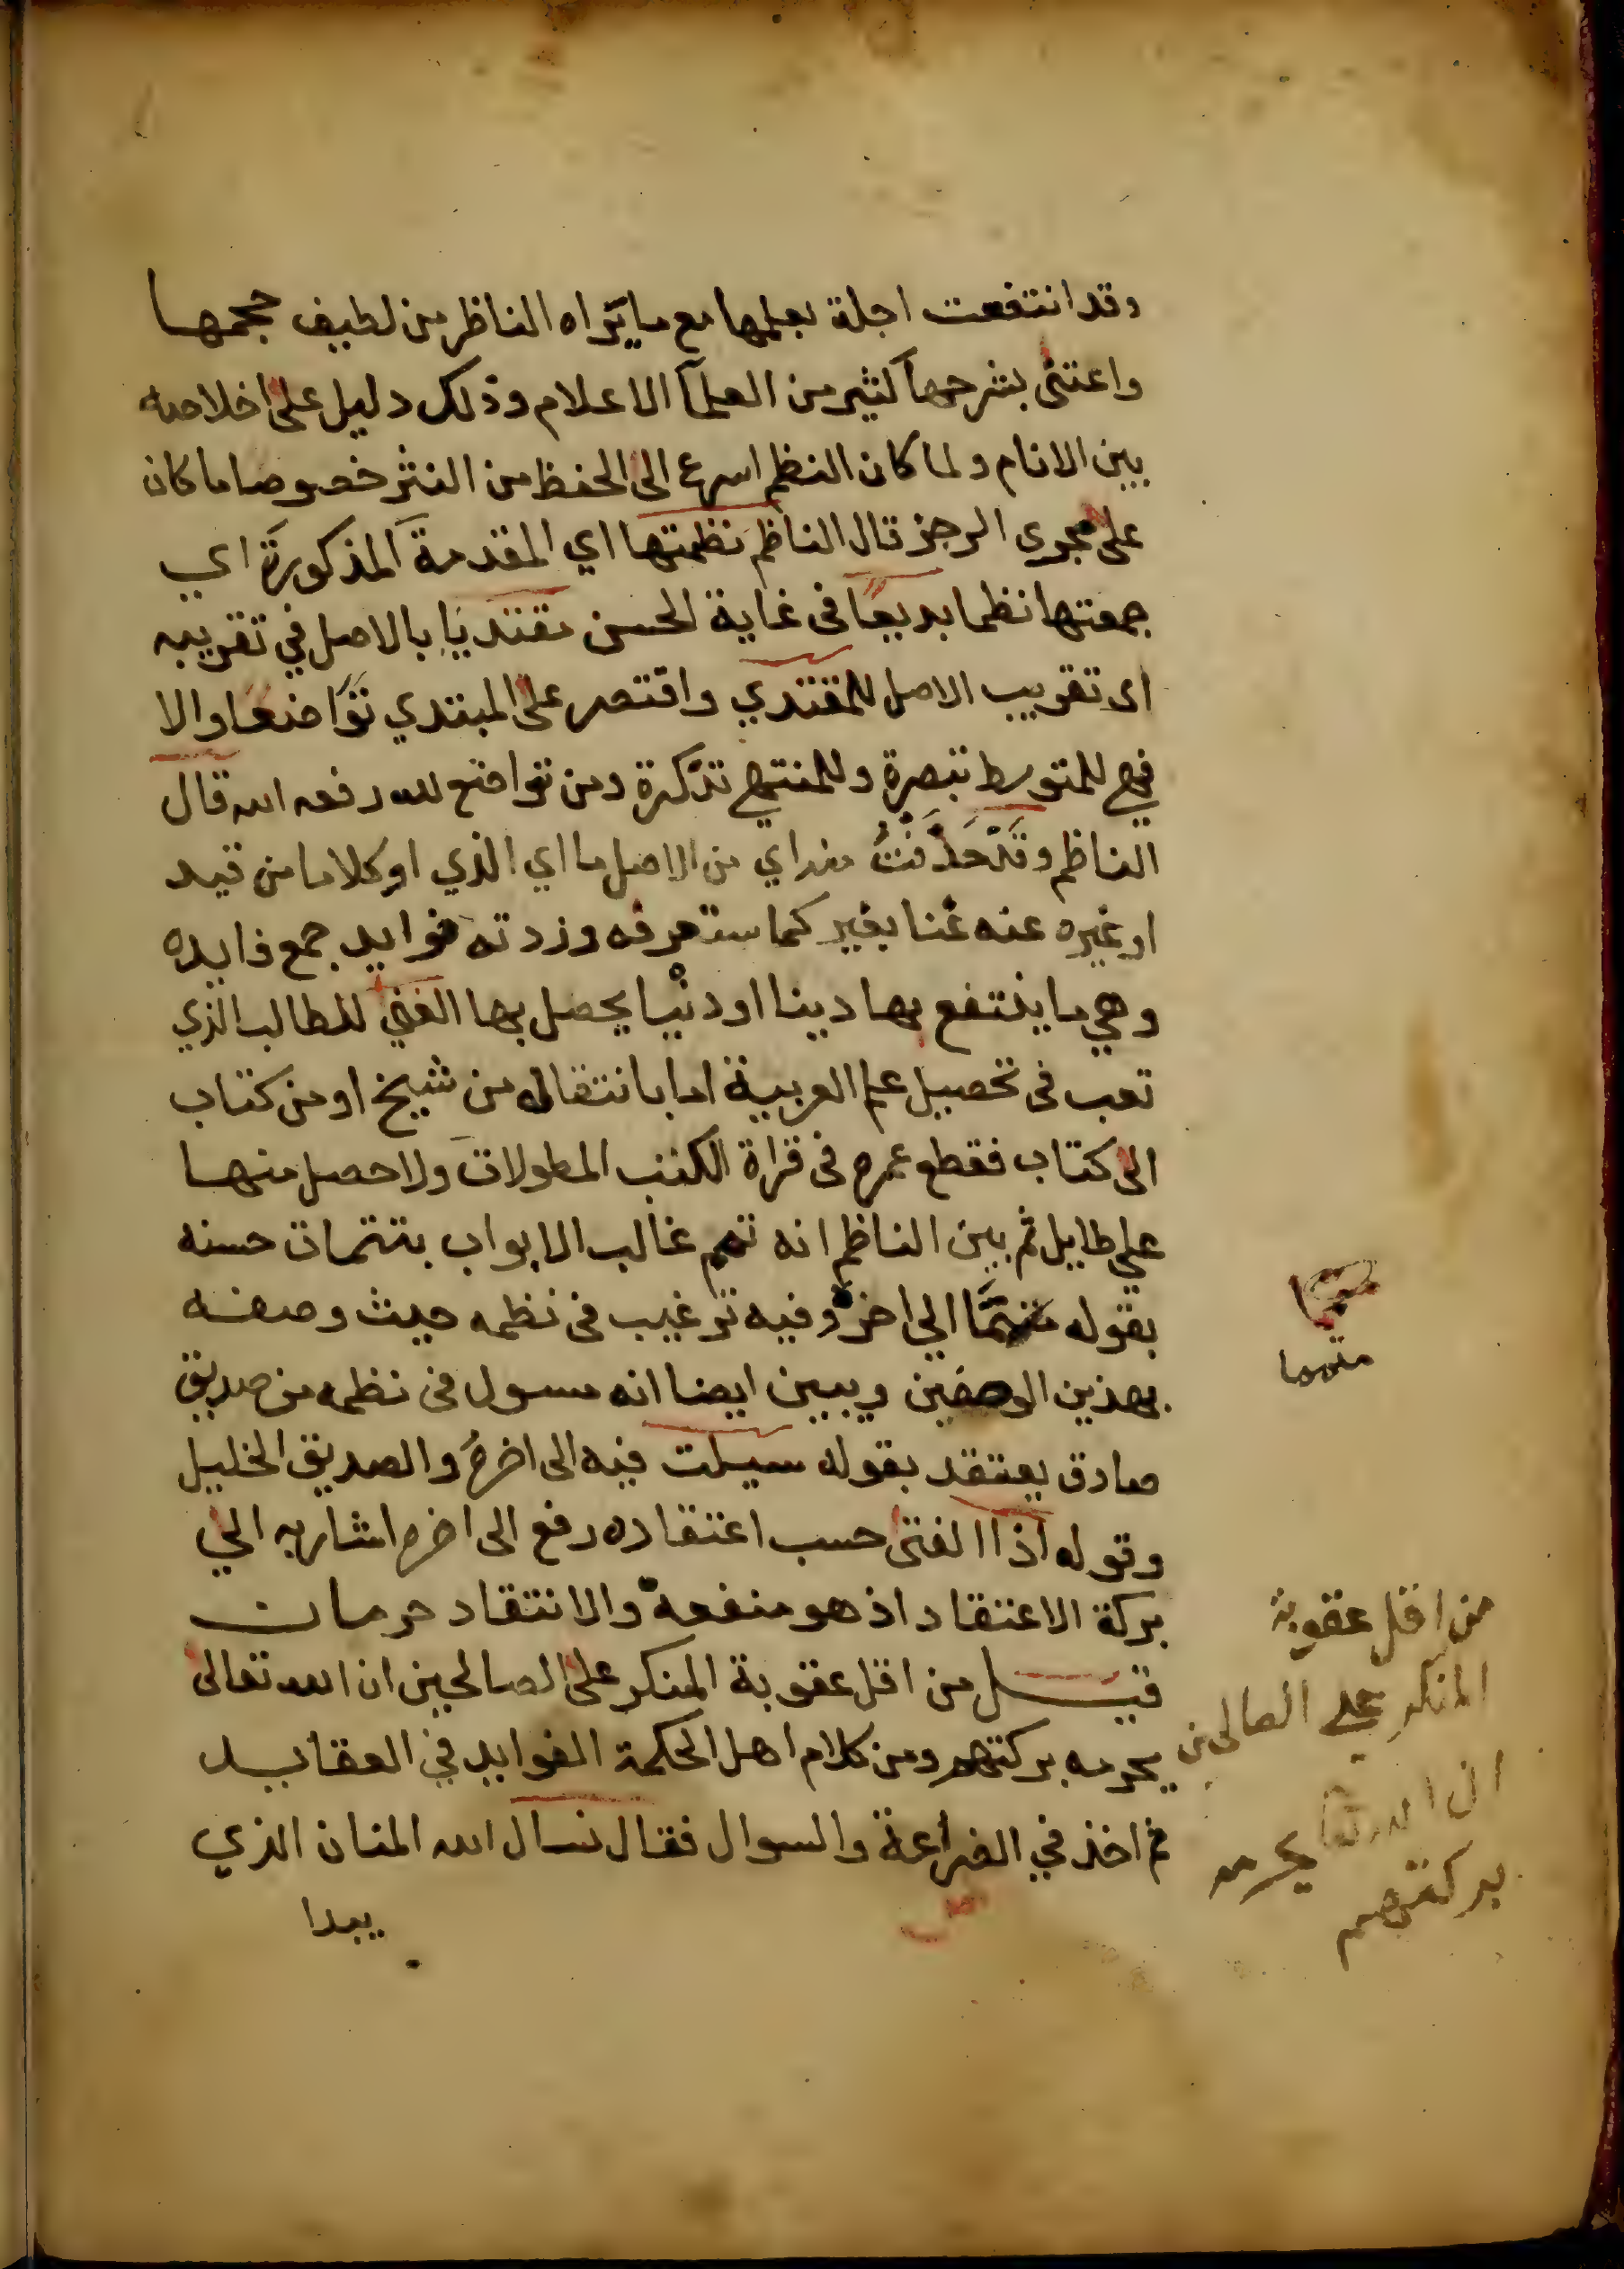 وقد انتفعت اجلة بعلمها مع ما يراه الناظر من لطيف حجمها
واعتنى بشرحها كثير من العلماَ الاعلام وذلك دليل على اخلاصه
بين الانام ولما كان النظم اسرع الى الحفظ من النثر خصوصا ما كان
على مجرى الرجز قال الناظم نظمتها اي المقدمة المذكورة اي
جمعتها نظما بديعًا فى غاية الحسن مقتديًا بالاصل في تقريبه
اى تقريب الاصل للمقتدي واقتصر على المبتدي تواضعًا والا
فهي للمتوسط تبصرة وللمنتهي تذكرة ومن تواضع لله رفعه الله قال
الناظم وقَدْ حَذَفْتُ منه اي من الاصل ما اي الذي او كلاما من قيد
او غيره عنه غنا بغير كما ستعرفه وزدته فوايد جمع فايده
وهي ما ينتفع بها دينا او دنيا يحصل بها الغني للطالب الذي
تعب فى تحصيل علم العربية اما بانتقاله من شيخ او من كتاب
الى كتاب فقطع عمره فى قراة الكتب المطولات ولا حصل منها
علي طايل ثم بين الناظم انه تمم غالب الابواب بتتمات حسنه
بقوله متمما الي اخره وفيه ترغيب فى نظمه حيث وصفه
بهذين الوصفين ويبين ايضا انه مسول فى نظمه من صديق
صادق يعتقد بقوله سيلت فيه الى اخره والصديق الخليل
وقوله اذا الفتى حسب اعتقاده رفع الى اخره اشار به الي
بركة الاعتقاد اذ هو منفعة والانتقاد حرمان
قيل من اقل عقوبة المنكر على الصالحين ان الله تعالى
يحرمه بركتهم ومن كلام اهل الحكمة الفوايد في العقايد
ثم اخذ في الضراعة والسوال فقال نسال الله المنان الذي
يبدا
متمما
من اقل عقوبة
المنكر علي الصالحين
ان الله تعا يحرمه
بركتهم